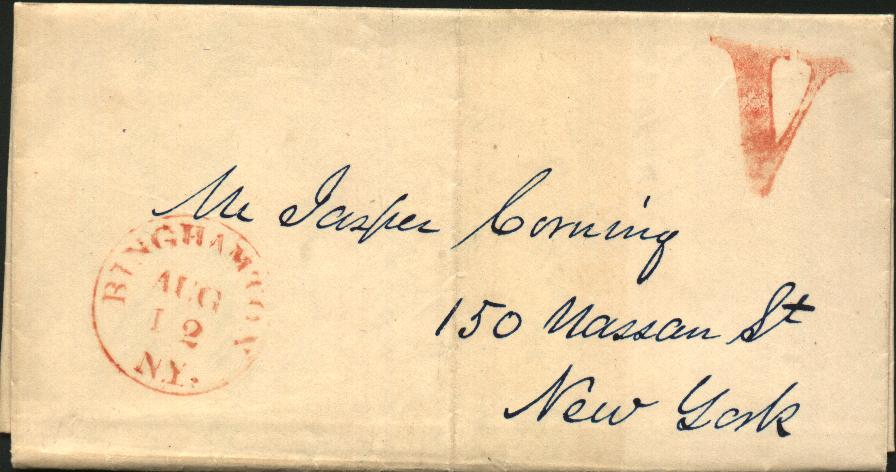 V
Mr Jasper Corning
150 Nassau St
New York
BINGHAMTON
AUG
12
N.Y.